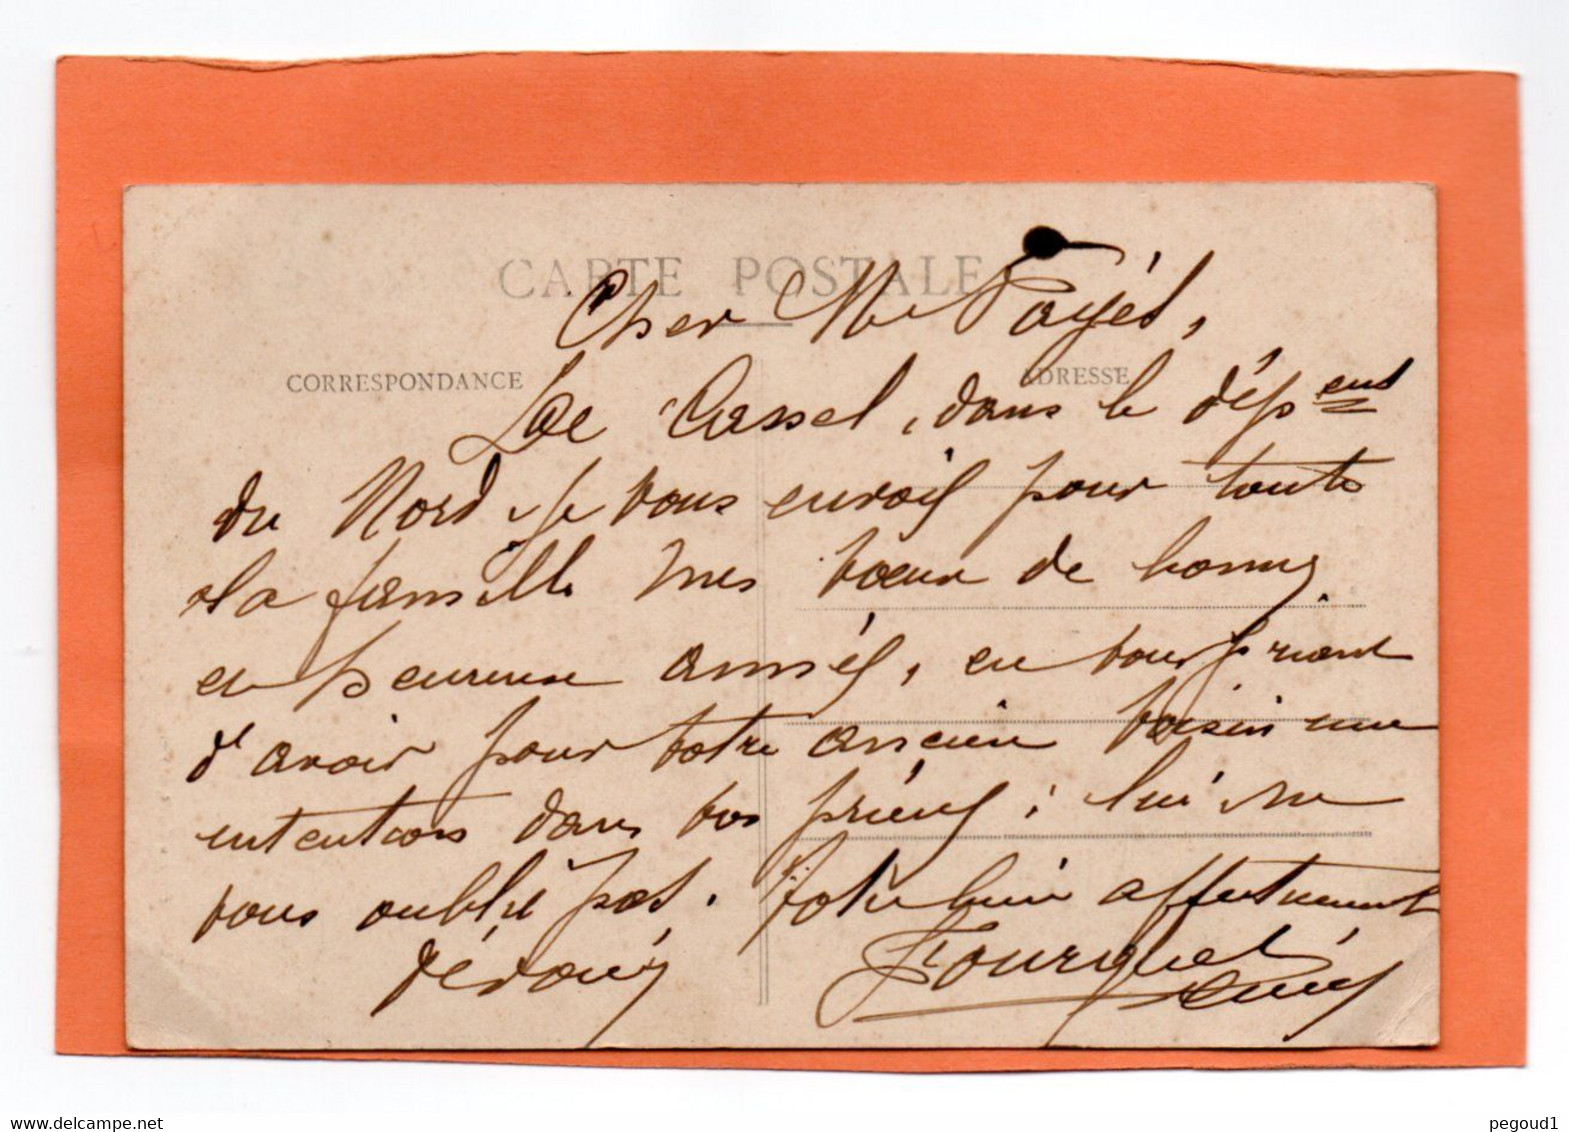 CARTE POSTALE
Cher Mr Payés,
CORRESPONDANCE
ADRESSE
De Cassel, dans le dépent
du Nord, je vous envoie pour toute
la famille mes vœux de bonne
et heureuse année, en vous priant
d'avoir pour votre ancien voisin une
intention dans vos prières ; lui ne
vous oublie pas. Votre bien affectment
dévoué
Fourquet
Curé
www.delcampe.net
pegoud1